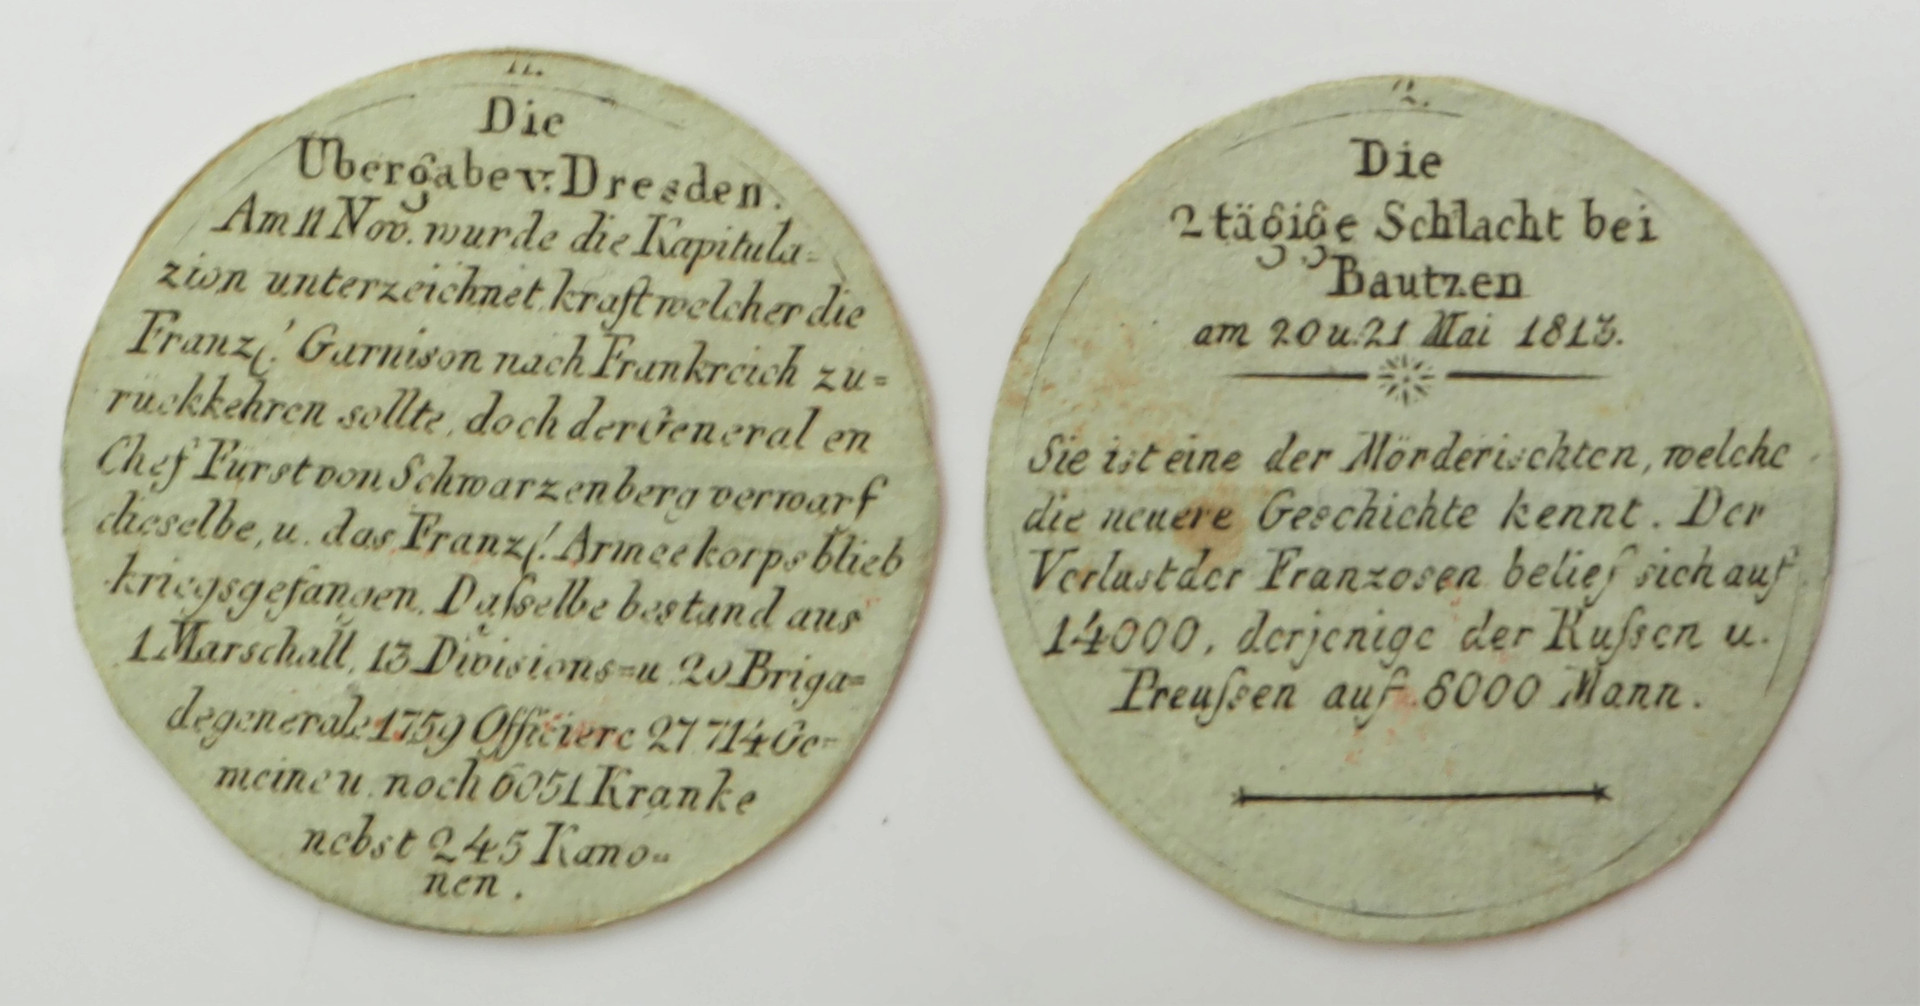 11.
Die
Ubergabe v. Dresden.
Am 11 Nov. wurde die Kapitula=
zion unterzeichnet, kraft welcher die
Franzſ. Garnison nach Frankreich zu=
rückkehren sollte, doch der General en
Chef Fürst von Schwarzenberg verwarf
dieselbe, u. das Franzſ. Armeekorps blieb
kriegsgefangen. Daſselbe bestand aus
1 Marschall, 13 Divisions=u. 20 Briga=
degenerale 1759 Officiere 27 714 Ge=
meine u. noch 6051 Kranke
nebst 245 Kano=
nen.
2.
Die
2 tägige Schlacht bei
Bautzen
am 20 u. 21 Mai 1813.
Sie ist eine der Mörderischten, welche
die neuere Geschichte kennt. Der
Verlust der Franzosen belief sich auf
14000, derjenige der Ruſsen u.
Preuſsen auf 8000 Mann.